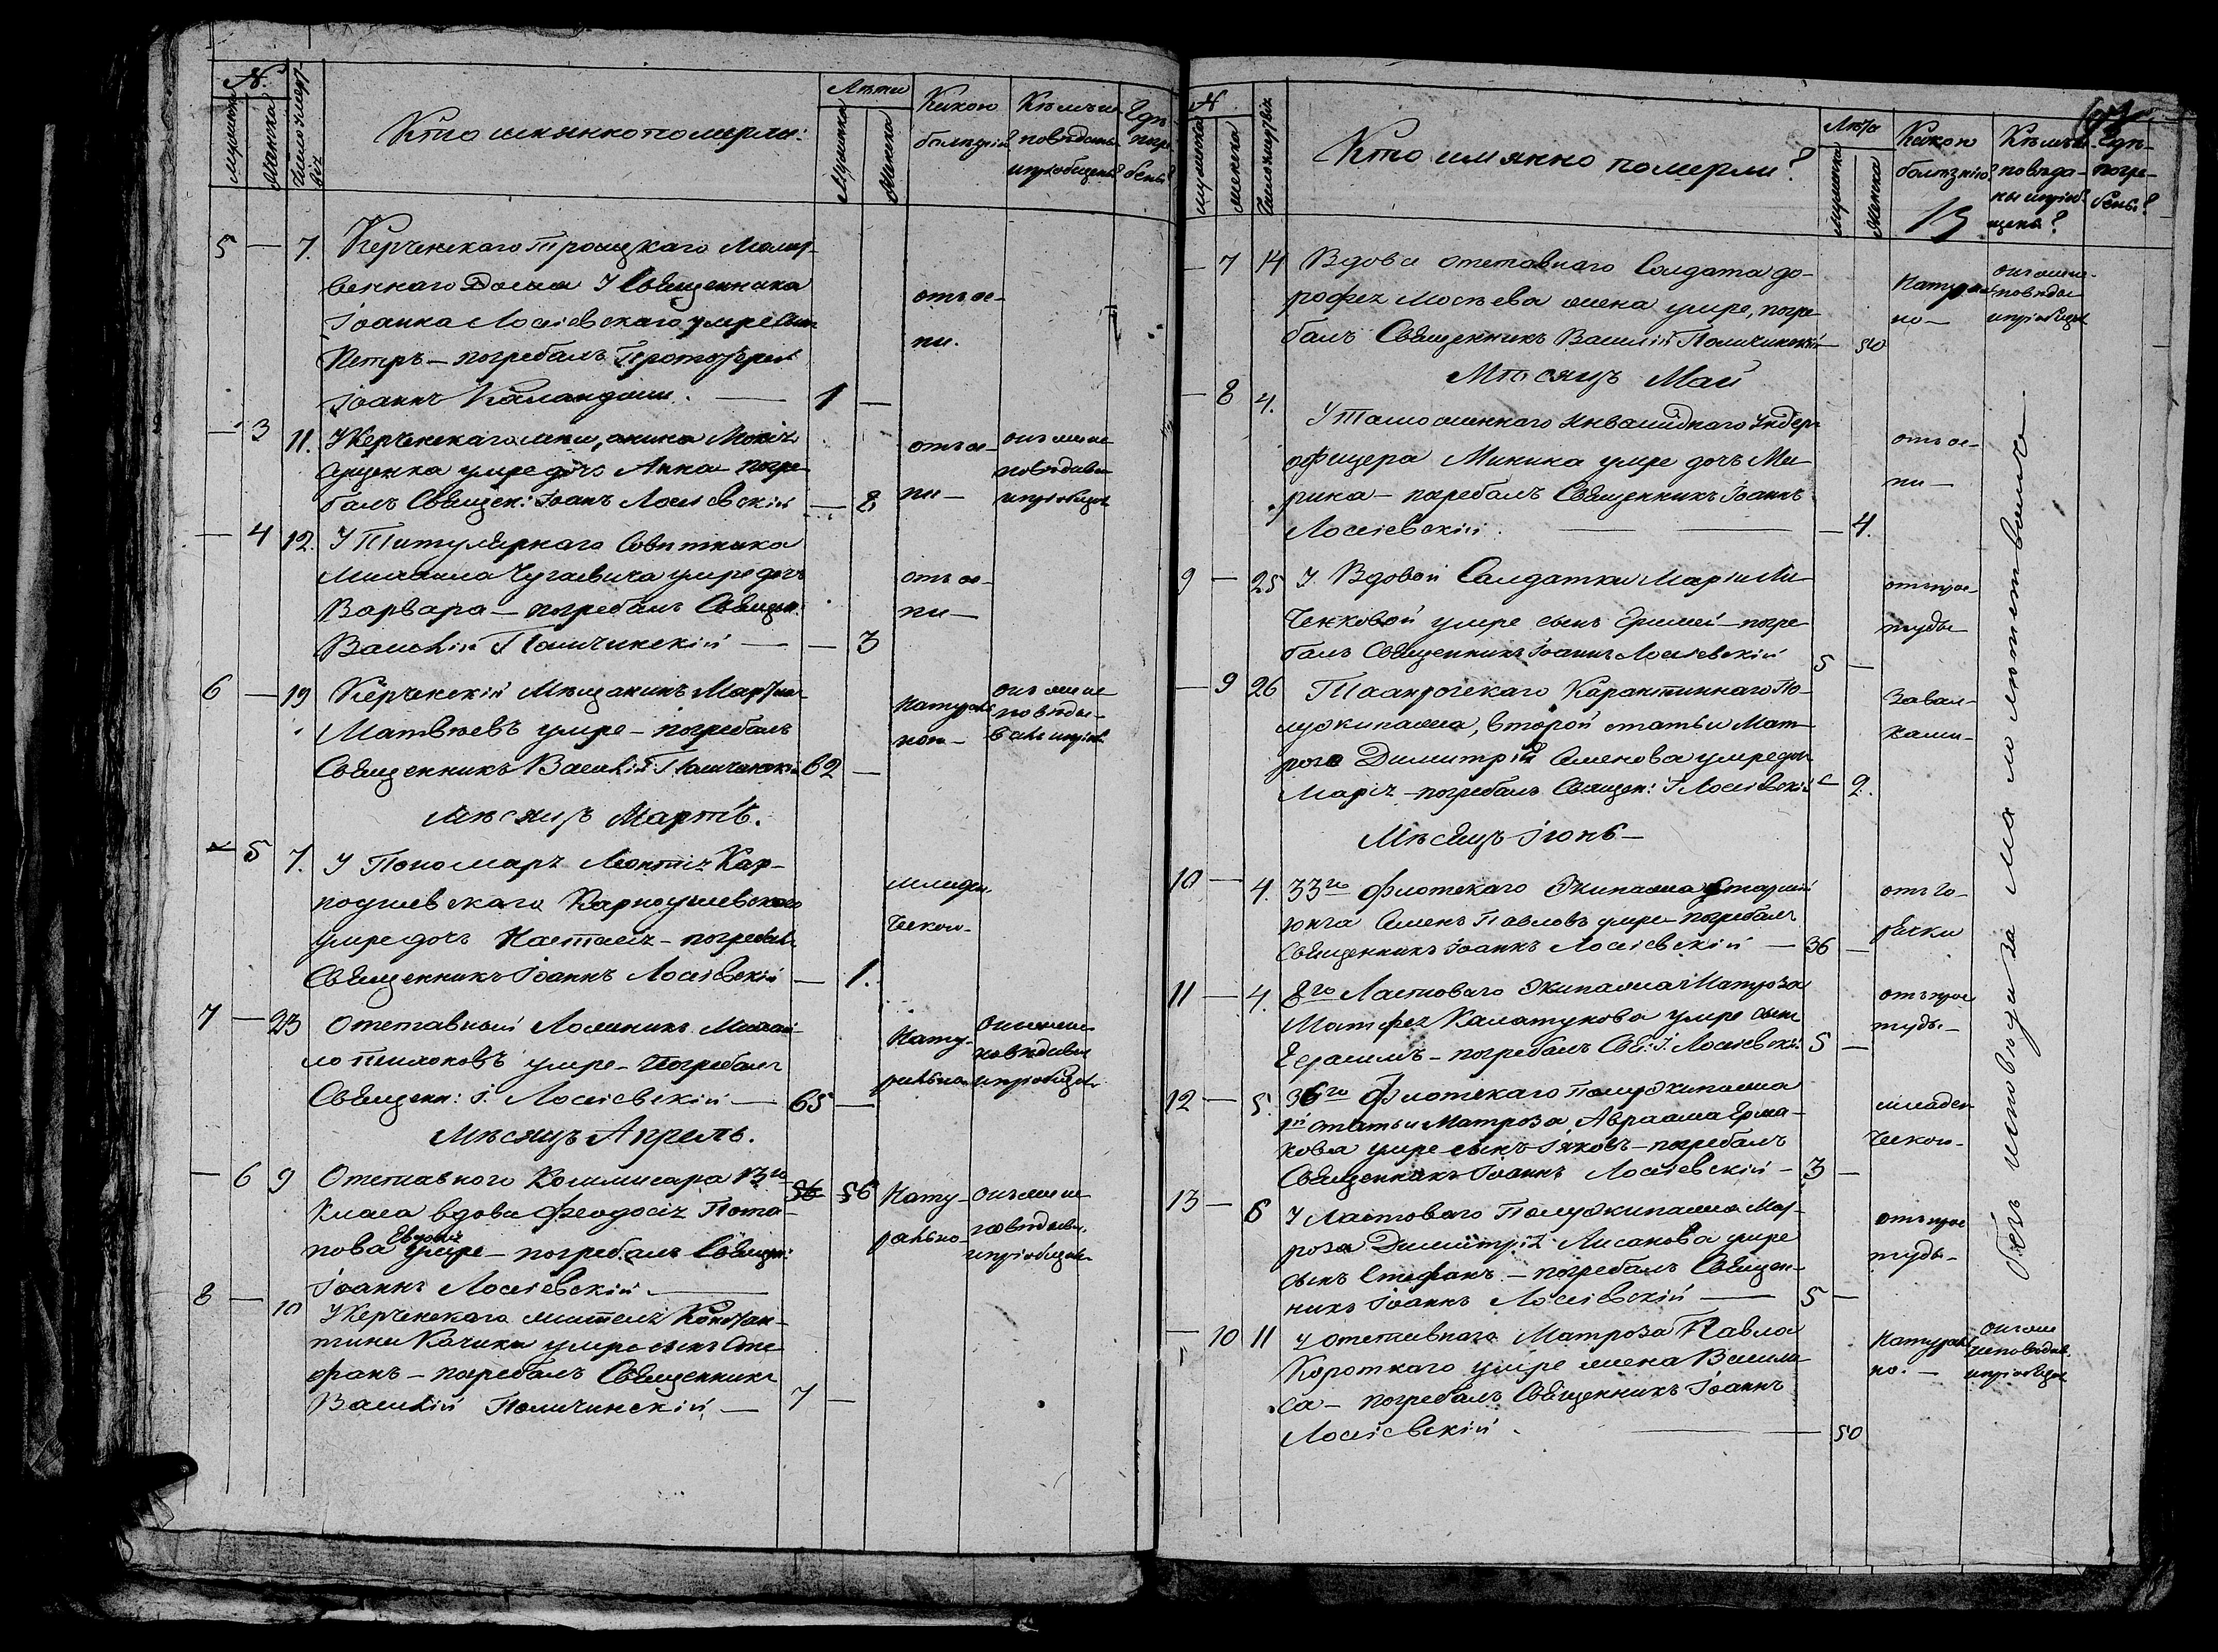 №.
мущинка
женска
Число смер-
тей
Кто имянно померли:
Лѣта
Мущинка
Женска
Какою
болѣзнію?
Кѣмъ ис-
повѣданы
и пріобщены?
Гдѣ
погре-
бены?
5 — 7. Керченскаго Троицкаго Молит-
веннаго Дома У Священника
Іоанна Лосіевскаго умре сынъ
Петръ — погребалъ Протоіерей
Іоаннъ Каландоши. — 1 —
отъ ос-
пи.
— 3 11. У Керченскаго
умре дочь Анна — погре-
балъ Священ: Іоанъ Лосіевскій — 8
отъ ос-
пи —
онъ же ис-
повѣдывал
и пріобщал
— 4 12. У Титулярнаго Совѣтника
Михаила Чугаевича умре дочь
Варвара — погребалъ Священ:
Василій Поличинскій — — 3
отъ ос-
пи —
6 — 19 Керченскій Мѣщанинъ Мартин
Матвѣевъ умре — погребалъ
Священникъ Василій Поличинскій 62 —
Натураль
ною —
онъ же ис
повѣды-
валъ и пріоб.
Мѣсяцъ Мартъ.
— 5 7. У Пономаря Леонтія Кар-
поушевскаго Карноушевскаго
умре дочь Настасія — погребалъ
Священникъ Іоаннъ Лосіевскій — 1.
младен
ческою —
7 — 23 Отставный Михай-
ло Тихоновъ умре — Погребалъ
Священн: І. Лосіевскій — 65 —
Нату-
рально
онъ же ис
повѣдывал
и пріобщал
Мѣсяцъ Апрель.
— 6 9 Отставного Коммисара 13го
класа вдова Феодосія Пота-
Евдокія
пова умре — погребалъ Священ:
Іоаннъ Лосіевскій —
56 56
Нату-
рально
онъ же ис
повѣдывал.
и пріобщал
8 — 10 У Керченскаго жителя Констан-
тина Качика умре сынъ Сте
фанъ — погребалъ Священникъ
Василій Поличинскій — 7 —
№
мущинка
женска
Число смертей
Кто имянно померли?
Лѣта
мущинка
женска
Какою
болѣзнію?
13
Кѣмъ ис-
повѣда-
ны и пріоб-
щены?
Гдѣ
погре-
бены?
— 7 14 Вдова отставнаго Солдата До-
рофея Мосѣева жена умре, погре
балъ Священникъ Василій Поличинскій — 50
Натураль
но —
онъ же ис-
повѣды
и пріобщал
Мѣсяцъ Май
— 8 4.
У Таможеннаго Инвалиднаго Ундеръ
офицера Минина умре дочь Ма
рина — погребалъ Священникъ Іоаннъ
Лосіевскій. — — 4.
отъ ос-
пи —
9 — 25 У Вдовой Солдатки Маріи Ми-
ченковой умре сынъ Ермей — погре
балъ Священникъ Іоаннъ Лосіевскій 5 —
отъ прос-
туды
— 9 26 Таганрогскаго Карантиннаго По-
луэкипажа, второй статьи Мат-
роса Димитрія Семенова умре дочь
Марія — погребалъ Священ: І Лосіевскій — 2.
Завал-
ками —
Мѣсяцъ Іюнь —
10 — 4. 33го Флотскаго Экипажа Старшій
юнга Семенъ Павловъ умре погребалъ
Священникъ Іоаннъ Лосіевскій — 36 —
отъ го-
рячки
11 — 4. 8го Ластоваго Экипажа Матроза
Матфея Калатунова умре сынъ
Герасимъ — погребалъ Свя: І. Лосіевскій 5 —
отъ прос
туды —
12 — 5. 36го Флотскаго полуэкипажа
1й статьи Матроза Авраама Ерма-
кова умре сынъ Іяковъ — погребалъ
Священникъ Іоаннъ Лосіевскій — 3 —
младен
ческою —
13 — 6 У Ластоваго Полуэкипажа Мат-
роза Димитрія Лисанова умре
сынъ Стефанъ. — погребалъ Священ-
никъ Іоаннъ Лосіевскій — 5 —
отъ прос
туды —
— 10 11 У отставнаго Матроза Павла
Короткаго умре жена Васили
са — погребалъ Священникъ Іоаннъ
Лосіевскій. — — 50
Натураль
но. —
онъ же
исповѣдыв.
и пріобщал
Безъ исповѣди за малолетствомъ